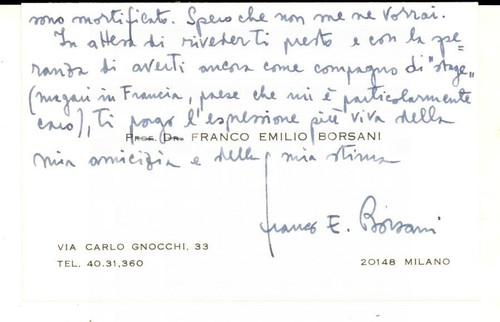 sono mortificato. Spero che non me ne vorrai.
In attesa di rivederti presto e con la spe-
ranza di averti ancora come compagno di "stage"
(magari in Francia, paese che mi è particolarmente
caro), ti porgo l'espressione più viva della
PROF. DR. FRANCO EMILIO BORSANI
mia amicizia e della mia stima
Franco E. Borsani
VIA CARLO GNOCCHI, 33
TEL. 40.31,360
20148 MILANO